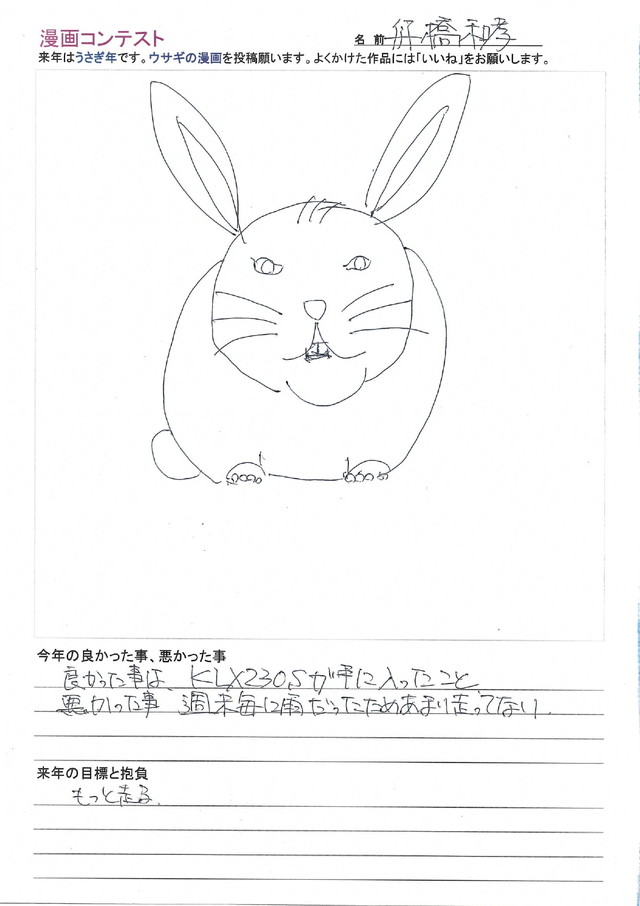 漫画コンテスト
名 前 橋和孝
来年はうさぎ年です。ウサギの漫画を投稿願います。よくかけた作品には「いいね」をお願いします。
今年の良かった事、悪かった事
良かった事は、KLX230Sが手に入ったこと、
悪かった事 週末毎に雨だったためあまり走ってない.
来年の目標と抱負
もっと走る.